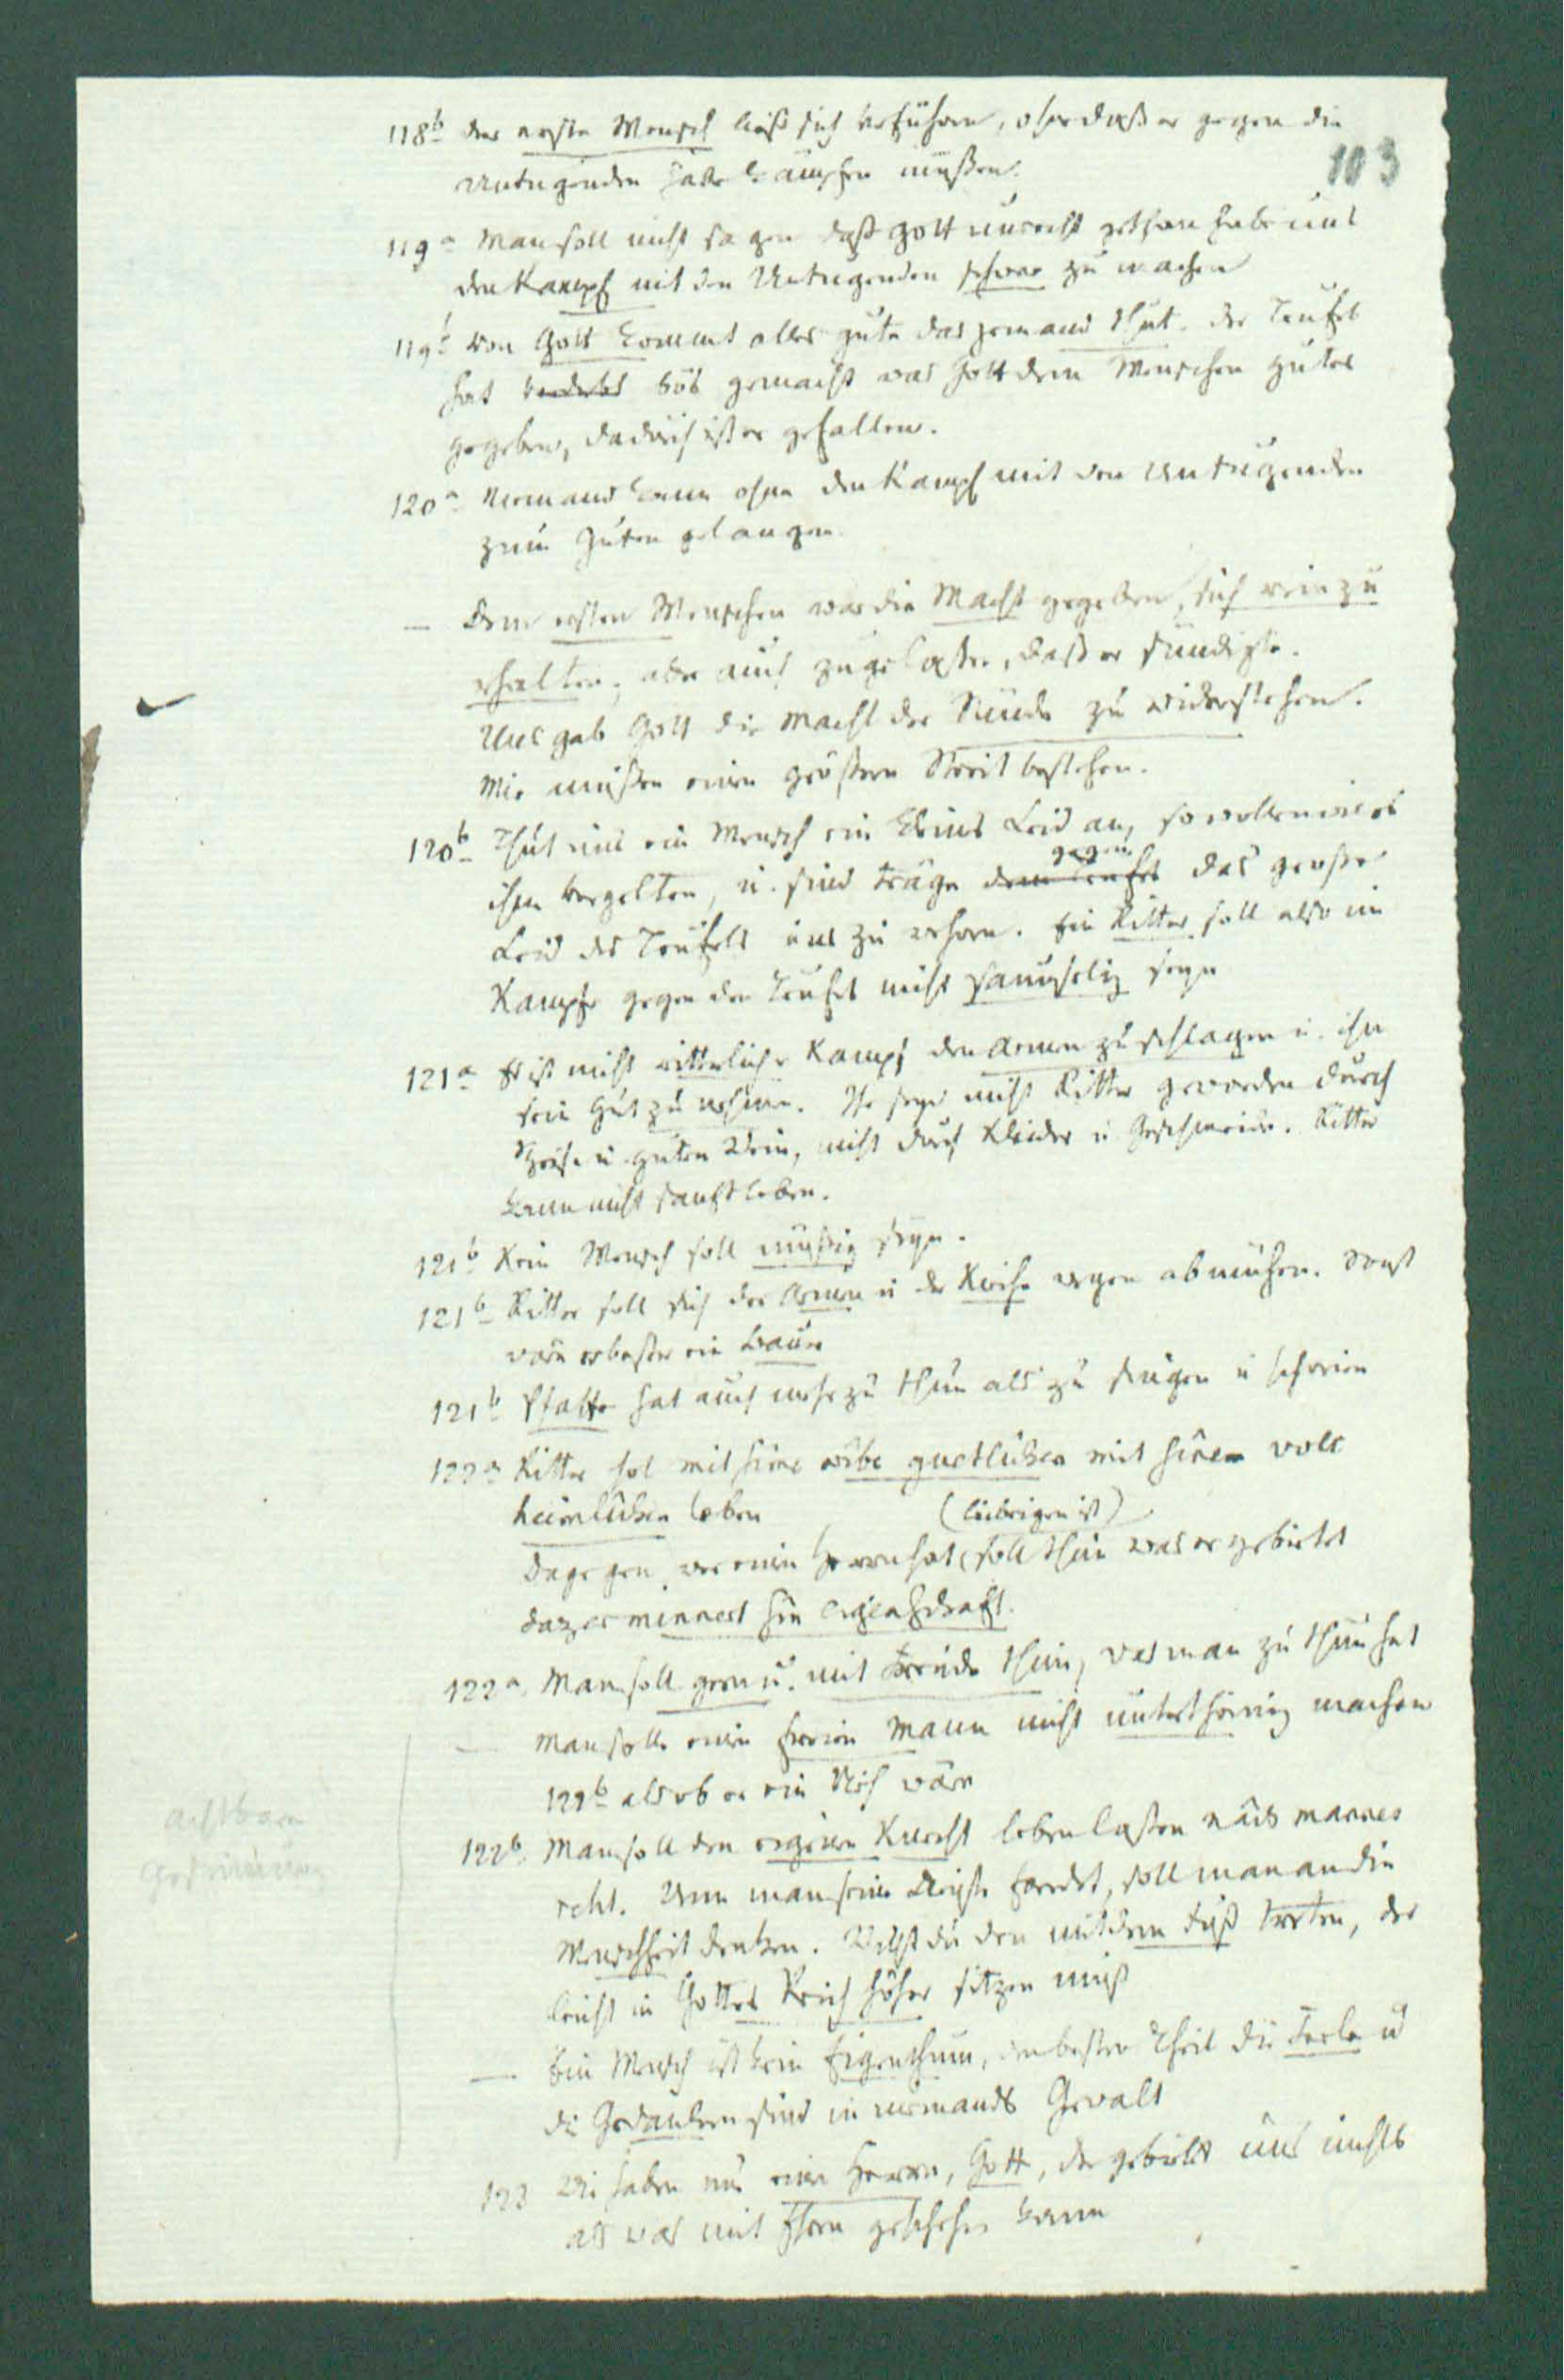 103
118b der erste Mensch ließ sich verführen, ohne daß er gegen die
Untugenden hätte kämpfen müßen.
119a Man soll nicht sagen daß Gott unrecht gethan habe uns
den Kampf mit den Untugenden schwer zu machen
119b Von Gott kommt alles gute das jemand thut. der Teufel
hat bös gemacht was Gott dem Menschen gutes
gegeben, dadurch ist er gefallen.
120a Niemand kann ohne den Kampf mit den Untugenden
zum Guten gelangen.
— Dem ersten Menschen war die Macht gegeben, sich rein zu
erhalten, aber auch zugelaßen, daß er sündigte.
Uns gab Gott die Macht der Sünde zu widerstehen.
Wir müßen einen größern Streit bestehen.
120b Thut uns ein Mensch ein kleines Leid an, so wollen wir es
ihm vergelten, u. sind träge gegen dem Teufel das große
Leid des Teufels uns zu wehren. Ein Ritter soll also im
Kampfe gegen den Teufel nicht saumselig seyn
121a Es ist nicht ritterlicher Kampf den Armen zu schlagen u. ihm
sein Gut zu nehmen. Ihr seyd nicht Ritter geworden durch
Speise u. guten Wein, nicht durch Kleider u Geschmeide. Ritter
kann nicht sanft leben.
121b Kein Mensch soll müßig seyn.
121b Ritter soll sich der Armen u der Kirche wegen abmühen. Sonst
wäre er beßer ein Bauer
121b Pfaffe hat auch mehr zu thun als zu singen u schreien
122a Ritter sol mit sime wîbe guetlichen mit sinem volc
heimlichen leben
(leibeigen ist)
Dagegen, wer einen Herren hat, soll thun was er gebietet
daz er minnert sin eigenschaft.
122a. Man soll gern u. mit Freude thun, was man zu thun hat
— Man solle einen freien Mann nicht unterthänig machen
122b als ob er ein Vieh wäre
122b. Man soll den eigenen Knecht leben laßen nâch mannes
reht. Wenn man seine Dienste fordert, soll man an die
Menschheit denken. Willst du den mit dem Fuß treten, der
leicht in Gottes Reich höher sitzen muß
— Ein Mensch ist kein Eigenthum, den besten Theil die Seele u
die Gedanken sind in niemands Gewalt
123 Wir haben nur einen Herren, Gott, der gebietet uns nichts
als was mit Ehren geschehen kann